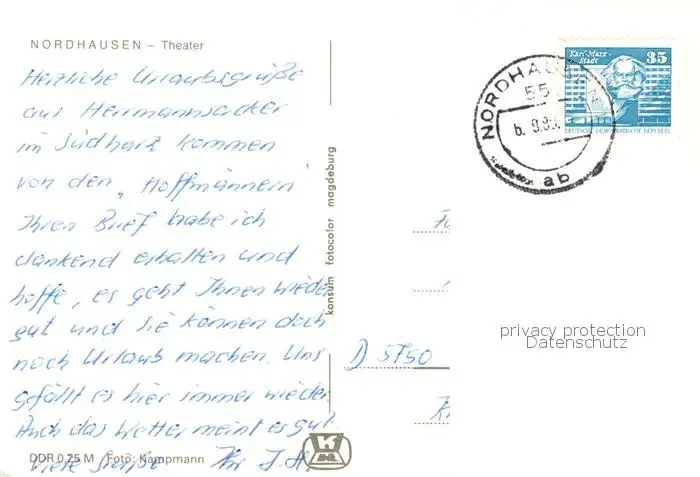 NORDHAUSEN – Theater
Herzliche Urlaubsgrüße
aus Herrmannsacker
im Südharz kommen
von den „Hoffmännern"
Ihren Brief habe ich
dankend erhalten und
hoffe, es geht Ihnen wieder
gut und Sie können doch
noch Urlaub machen. Uns
gefällt es hier immer wieder.
Auch das Wetter meint es gut.
Viele Grüße Ihr J. H.
DDR 0,25 M Foto: Kampmann
konsum fotocolor magdeburg
NORDHAUSEN
55
6. 9.8
ab
Karl-Marx-
Stadt
35
DEUTSCHE DEMOKRATISCHE REPUBLIK
D 5750
privacy protection
Datenschutz